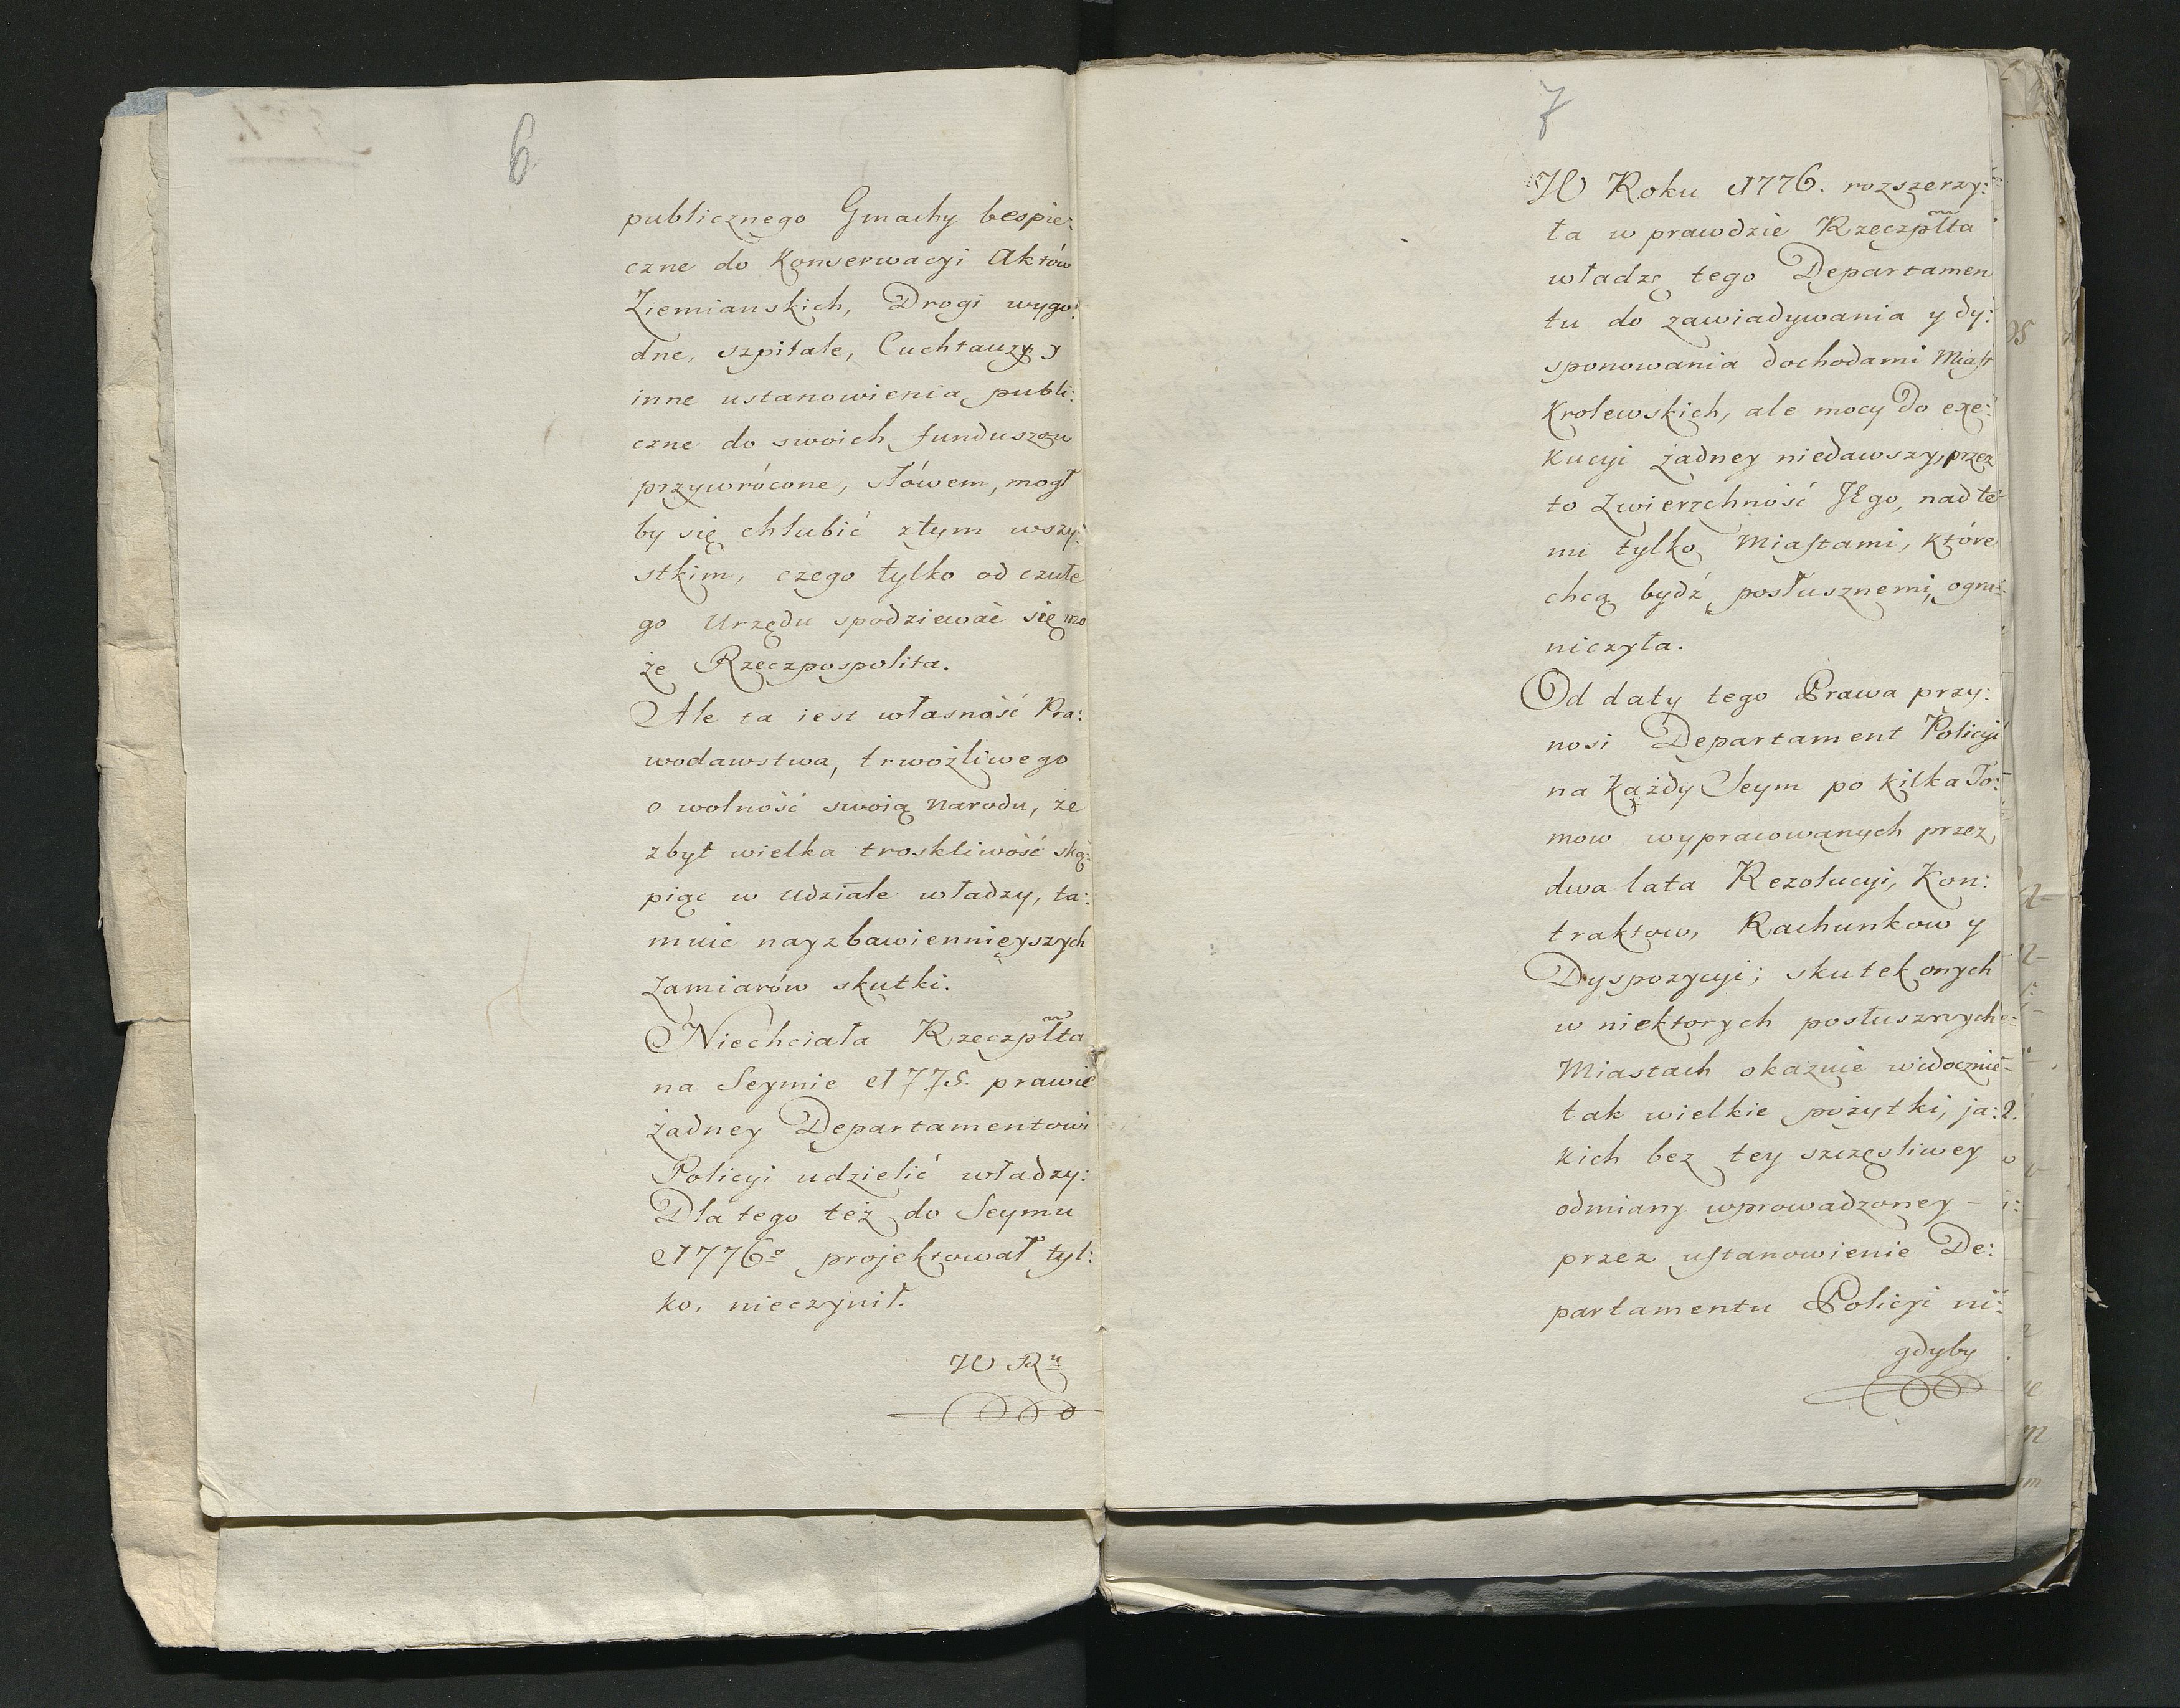 6
publicznego Gmachy bespie:
czne do Konserwacyi Aktów
Ziemianskich, Drogi wygo:
dne, szpitale, Cuchtauzy y
inne ustanowienia publi:
czne do swoich funduszow
przywrócone, słówem, mogł
by się chlubić z tym wszy:
stkim, czego tylko od czułe
go Urzędu spodziewać się mo
że Rzeczpospolita.
Ale ta iest własność Pra:
wodawstwa, trwożliwego
o wolność swoią Narodu, że
zbyt wielka troskliwość ską:
piąc w Udziale władzy, ta:
muie nayzbawiennieyszych
Zamiarów skutki.
Niechciała Rzeczpłta
na Seymie 1775. prawie
żadney Departamentowi
Policyi udzielić władzy:
Dla tego też do Seymu
1776o projektował tyl:
ko, nieczynił.
W Ru
7
W Roku 1776. rozszerzy:
ła w prawdzie Rzeczpłta
władzę tego Departamen
tu do zawiadywania y dy:
sponowania dochodami Miast
Krolewskich, ale mocy do exe:
kucyi żadney niedawszy, przez
to Zwierzchność JEgo, nad te
mi tylko Miastami, które
chcą bydź posłusznemi, ogra:
niczyła.
Od daty tego Prawa przy:
nosi Departament Policyi
na Każdy Seym po kilka To:
mow wypracowanych przez
dwa lata Rezolucyi, Kon:
traktow, Rachunkow y
Dyspozycyi; skutek onych
w niektorych posłusznych
Miastach okazuie widocznie
tak wielkie pożytki, ja:
kich bez tey szczęsliwey
odmiany wprowadzoney -
przez ustanowienie De:
partamentu Policyi ni:
gdyby